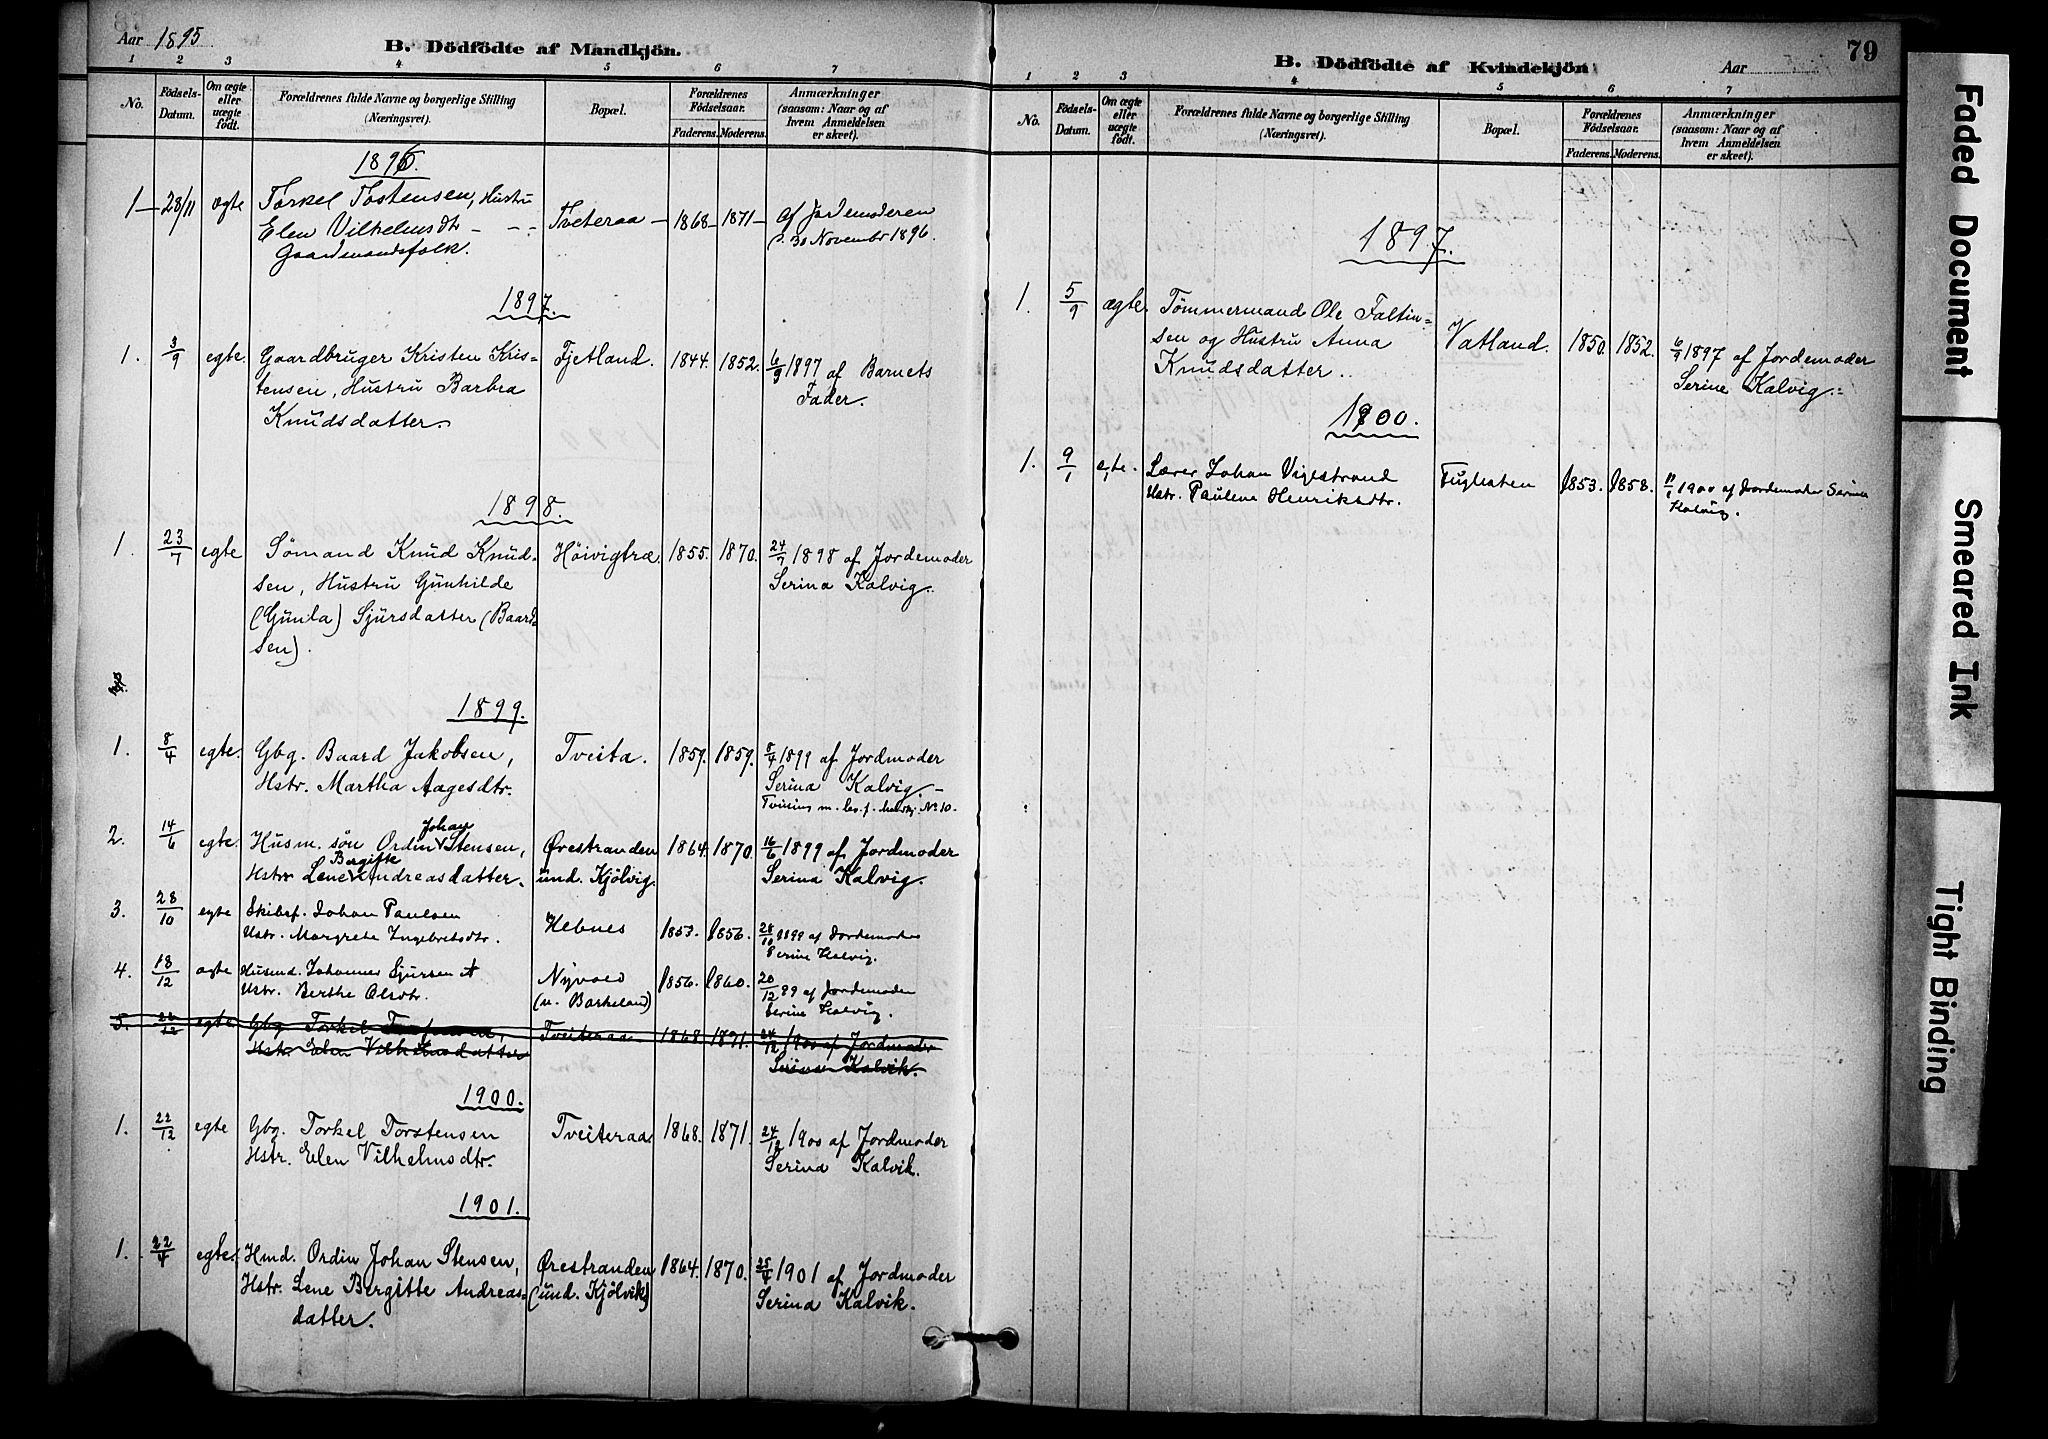 Aar 1895
B. Dödfödte af Mandkjön.
1 2 3 4 5 6 7
No.
Födsels-Datum.
Om ægte eller uægte födt.
Forældrenes fulde Navne og borgerlige Stilling (Næringsvei).
Bopæl.
Forældrenes Födselsaar.
Faderens. Moderens.
Anmærkninger (saasom: Naar og af hvem Anmeldelsen er skeet).
1896.
1 — 28/11 ægte Torkel Tostensen, Hustru Tveteraa — 1868 — 1871 — af Jordemoderen
Elen Vilhelmsdtr d. 30 Novembr 1896.
Gaardmandsfolk.
1897.
1. 3/9 egte. Gaardbruger Kristen Kris- Fjetland. 1844. 1852. 6/9 1897 af Barnets
tensen, Hustru Barbra Fader.
Knudsdatter.
1898.
1. 23/7 egte Sömand Knud Knud- Höivigtræ 1855. 1870. 24/7 1898 af Jordemoder
sen, Hustru Gunhilde Serina Kalvig.
(Gunla) Sjursdatter (Baard-
sen).
1899.
1. 8/4 egte. Gbg. Baard Jakobsen, Tveita. 1859. 1859. 8/4 1899 af Jordmoder
Hstr. Martha Aagesdtr. Serina Kalvig. —
No 10.
2. 14/6 egte. Husm. søn Ordin Johan Stensen, Ørestranden 1864. 1870. 16/6 1899 af Jordmoder
Hstr Lene Bergitte Andreasdatter. und. Kjölvig. Serina Kalvig.
3. 28/10 egte Skibsf. Johan Paulsen Hebnes 1853. 1856. 28/10 1899 af Jordemoder
Hstr. Margrete Ingebretsdtr. Serine Kalvig.
4. 18/12 ægte Husmd. Johannes Sjursen Nyvold 1856. 1860. 20/12 99 af Jordemoder
Hstr. Berthe Olsdtr. (u. Barkeland) Serine Kalvig.
5. 22/12 egte. Gbg Torkel Torstensen, Tveiteraa 1868 1871. 24/12 1900 af Jordmoder
Hstr. Elen Vilhelmsdatter Serina Kalvik.
1900.
1. 22/12 egte Gbg. Torkel Torstensen Tveiteraa 1868. 1871. 24/12 1900 af Jordmoder
Hstr. Elen Vilhelmsdtr. Serina Kalvik.
1901.
1. 22/4 egte. Hmd. Ordin Johan Stensen, Ørestranden 1864. 1870. 25/4 1901 af Jordmoder
Hstr. Lene Bergitte Andreas- (und. Kjölvik) Serina Kalvik.
datter.
79
B. Dödfödte af Kvindekjön
Aar
1 2 3 4 5 6 7
No.
Födsels-Datum.
Om ægte eller uægte födt.
Forældrenes fulde Navne og borgerlige Stilling (Næringsvei).
Bopæl.
Forældrenes Födselsaar.
Faderens. Moderens.
Anmærkninger (saasom: Naar og af hvem Anmeldelsen er skeet).
1897.
1. 5/9 ægte. Tømmermand Ole Faltin-
sen og Hustru Anna Vatland. 1850. 1852. 6/9 1897 af Jordemoder
Knudsdatter. Serine Kalvig.
1900.
1. 9/1 egte. Lærer Johan Vigestrand Fuglesten 1853. 1858. 11/1 1900 af Jordemoder Serine
Hstr. Pauline Henriksdtr. Kalvig.
Faded Document
Smeared Ink
Tight Binding